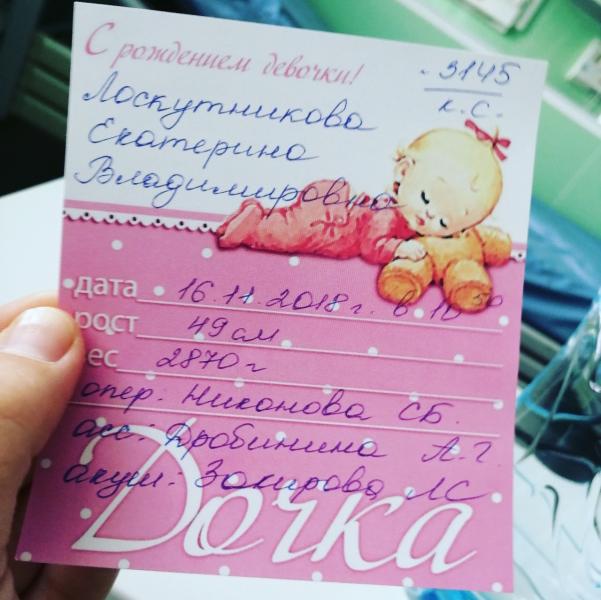 С рождением девочки!
№ 3145
к.с.
Лоскутникова
Екатерина
Владимировна
дата 16.11.2018 г. в 10 50
рост 49 см
вес 2870 г
опер: Никонова СБ.
асс: Дробинина А.Г.
акуш: Закирова ЛС
Дочка